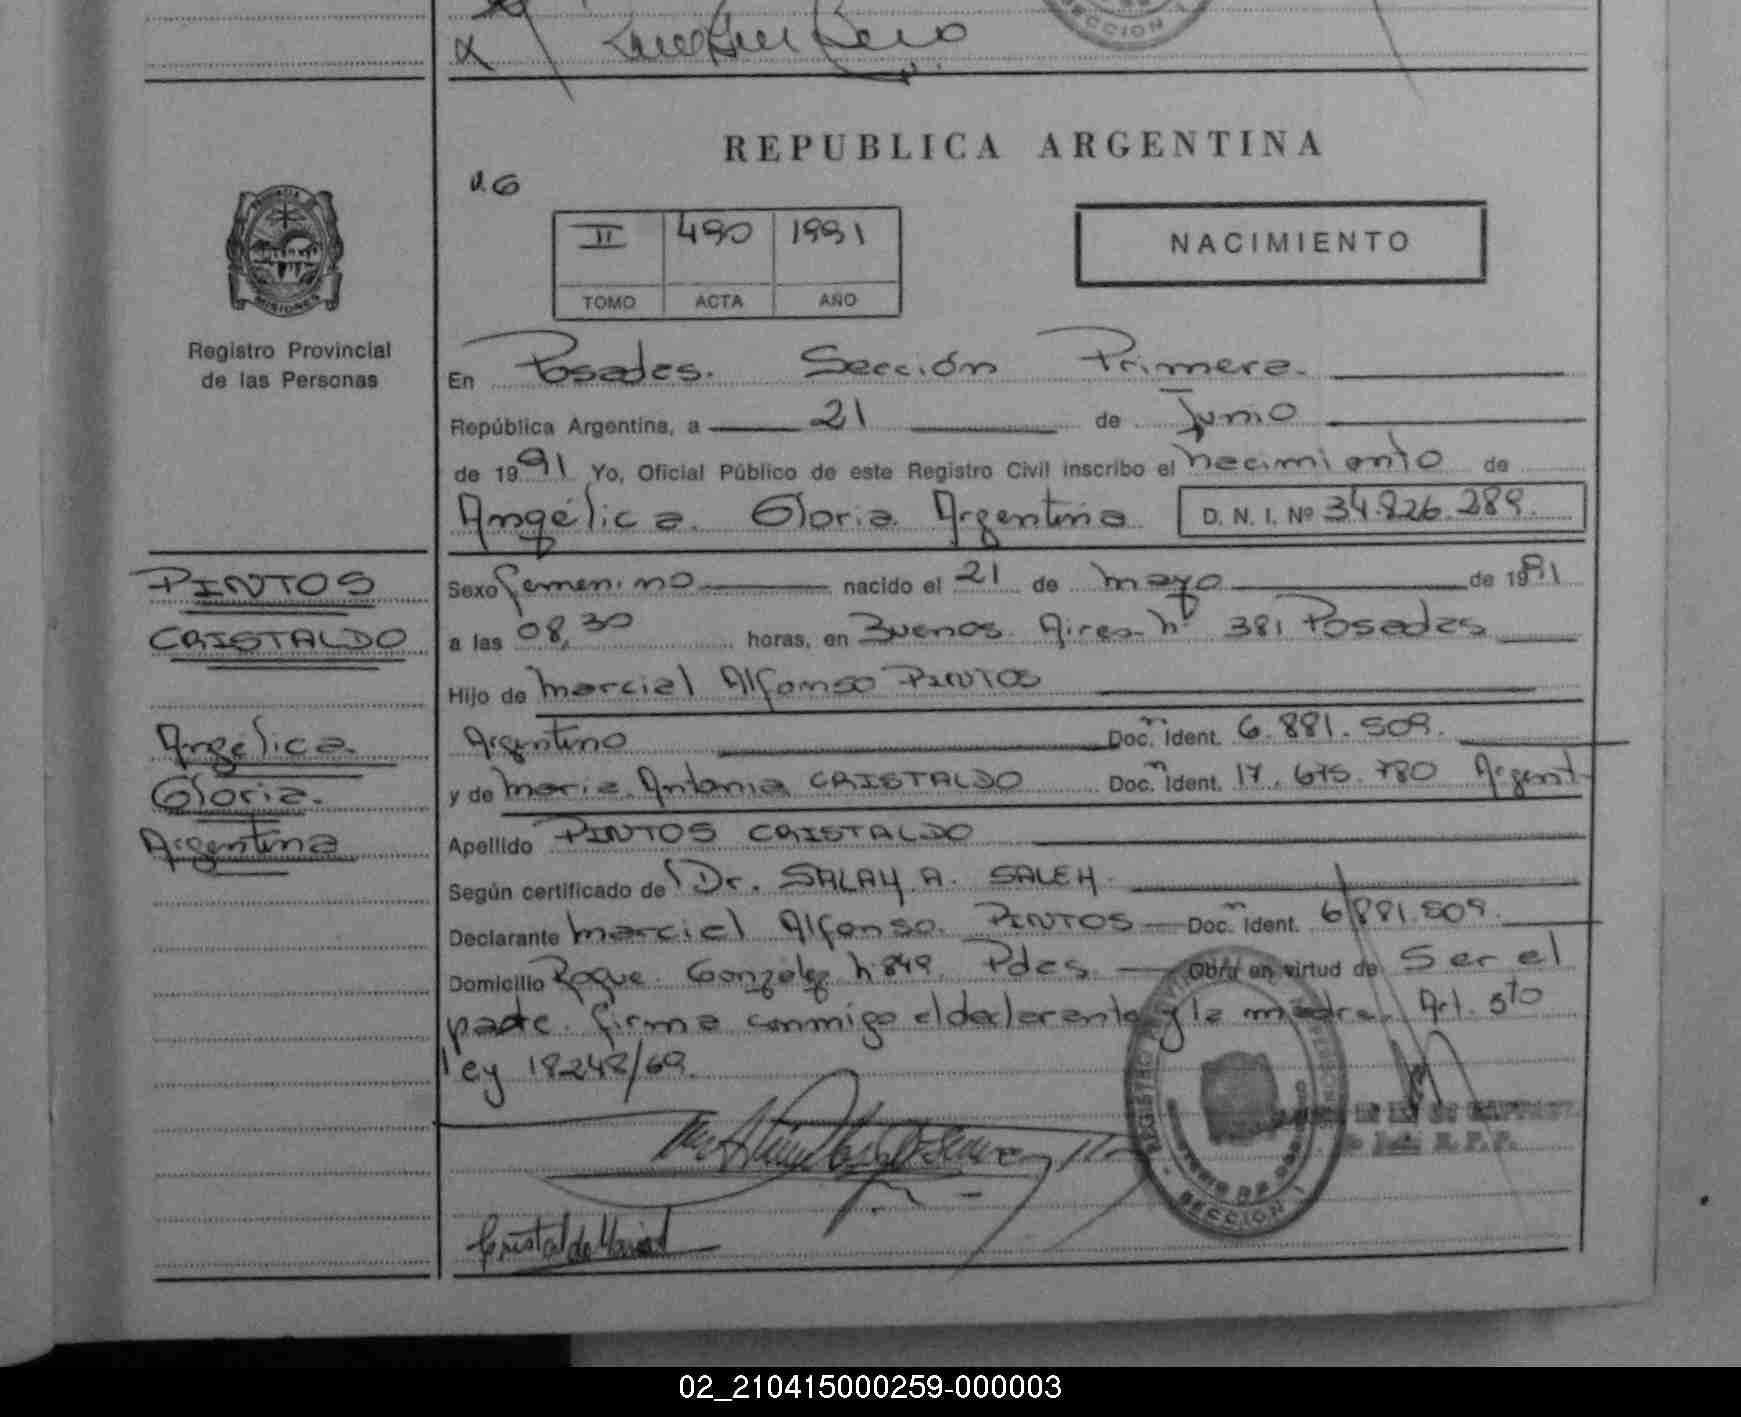 REPUBLICA ARGENTINA
II 490 1991
TOMO ACTA AÑO
NACIMIENTO
MISIONES
Registro Provincial
de las Personas
En Posadas. Sección Primera.
República Argentina, a 21 de Junio
de 1991 Yo, Oficial Público de este Registro Civil inscribo el nacimiento de
Angélica Gloria Argentina D. N. I. Nº 34.826.289.
PINTOS
CRISTALDO
Angélica
Gloria.
Argentina
Sexo femenino nacido el 21 de mayo de 1991
a las 08,30 horas, en Buenos Aires nº 381 Posadas
Hijo de Marcial Alfonso PINTOS
Argentino Doc. Ident. 6.881.509.
y de Maria Antonia CRISTALDO Doc. Ident. 17.675.780 Argent
Apellido PINTOS CRISTALDO
Según certificado de Dr. SALAH. A. SALEH.
Declarante Marcial Alfonso PINTOS Doc. Ident. 6.881.509.
Domicilio Roque Gonzalez n 849. Pdas. Obra en virtud de Ser el
padre. firma conmigo el declarante y la madre. Art. 5to
ley 18248/69.
SECCION I
Cristaldo Maria A
02_210415000259-000003